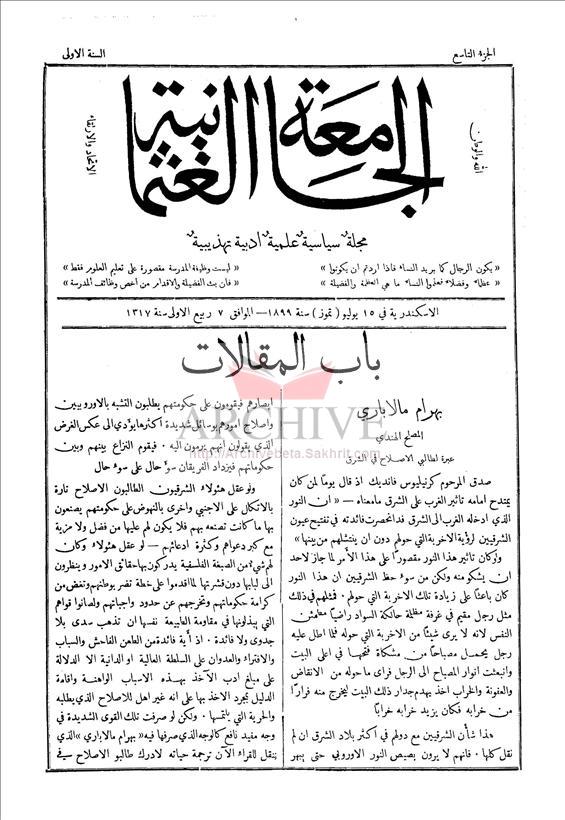 الجزء التاسع
السنة الاولى
الجامعة العثمانية
الله والوطن
الاتحاد والارتقاء
مجلة سياسية علمية ادبية تهذيبية
« يكون الرجال كما يريد النساء فاذا اردتم ان يكونوا »
« عظماء وفضلاء فعلموا النساء ما هي العظمة والفضيلة »
« ليست وظيفة المدرسة مقصورة على تعليم العلوم فقط »
« فان بث الفضيلة والاقدام من أخص وظائف المدرسة »
الاسكندرية في ١٥ يوليو ( تموز ) سنة ١٨٩٩ — الموافق ٧ ربيع الاولى سنة ١٣١٧
باب المقالات
بهرام مالاباري
المصلح الهندي
عبرة لطالبي الاصلاح في الشرق
صدق المرحوم كرنيليوس فانديك اذ قال يومًا لمن كان
يمتدح امامه تاثير الغرب على الشرق مامعناه — « ان النور
الذي ادخله الغرب الى الشرق قد انحصرت فائدته في تفتيح عيون
الشرقيين لرؤية الاخربة التي حولهم دون ان ينتشلهم من بينها »
ولو كان تاثير هذا النور مقصورًا على هذا الأمر لما جاز لاحد
ان يشكو منه ولكن من سوء حظ الشرقيين ان هذا النور
كان باعثًا على زيادة تلك الاخربة التي حولهم فمثلهم في ذلك
مثل رجل مقيم في غرفة مظلمة حالكة السواد راضيًا مطمئن
النفس لانه لا يرى شيئًا من الاخربة التي حوله فما اطل عليه
رجل يحمل مصباحًا من مشكاة فتحها في اعلى البيت
وانبعثت انوار المصباح الى الرجل فرأى ما حوله من الانقاض
والعفونة والخراب اخذ يهدم جدار ذلك البيت ليخرج منه فرارًا
من خرابه فكان يزيد خرابه خرابًا
هذا شأن الشرقيين مع دولهم في اكثر بلاد الشرق ان لم
نقل كلها . فانهم لا يرون بصيص النور الاوروبي حتى يبهر
ابصارهم فيقومون على حكومتهم يطلبون التشبه بالاوروبيين
واصلاح امورهم بوسائل شديدة اكثرها يودي الى عكس الغرض
الذي يقولون انهم يرمون اليه . فيقوم النزاع بينهم وبين
حكوماتهم فيزداد الفريقان سوء حال على سوء حال
ولو عقل هئولاء الشرقيون الطالبون الاصلاح تارة
بالاتكال على الاجنبي واخرى بالنهوض على حكومتهم يصنعون
بها ما كانت تصنعه بهم فلا يكون لهم عليها من فضل ولا مزية
مع كبر دعواهم وكثرة ادعائهم — لو عقل هئولاء وكان
لهم شيء من الصبغة الفلسفية يدركون بها حقائق الامور وينظرون
الى لبابها دون قشرتها لما اقدموا على خطة تضر بوطنهم وتغض من
كرامة حكوماتهم وتخرجهم عن حدود واجباتهم ولصانوا قواهم
التي يبذلونها في مقاومة الطبيعة نفسها ان تذهب سدى بلا
جدوى ولا فائدة . اذ أية فائدة من الطعن الفاحش والسباب
والافتراء والعدوان على السلطة العالية او الدانية الا الدلالة
على مبلغ ادب الآخذ بهذه الاسباب الواهنة واقامة
الدليل بمجرد الاخذ بها على انه غير اهل للاصلاح الذي يطلبه
والحرية التي يلتمسها . ولكن لو صرفت تلك القوى الشديدة في
وجه مفيد نافع كالوجه الذي صرفها فيه « بهرام مالاباري » الذي
ننقل للقراء الآن ترجمة حياته لادرك طالبو الاصلاح في
ARCHIVE
http://Archivebeta.Sakhrit.com